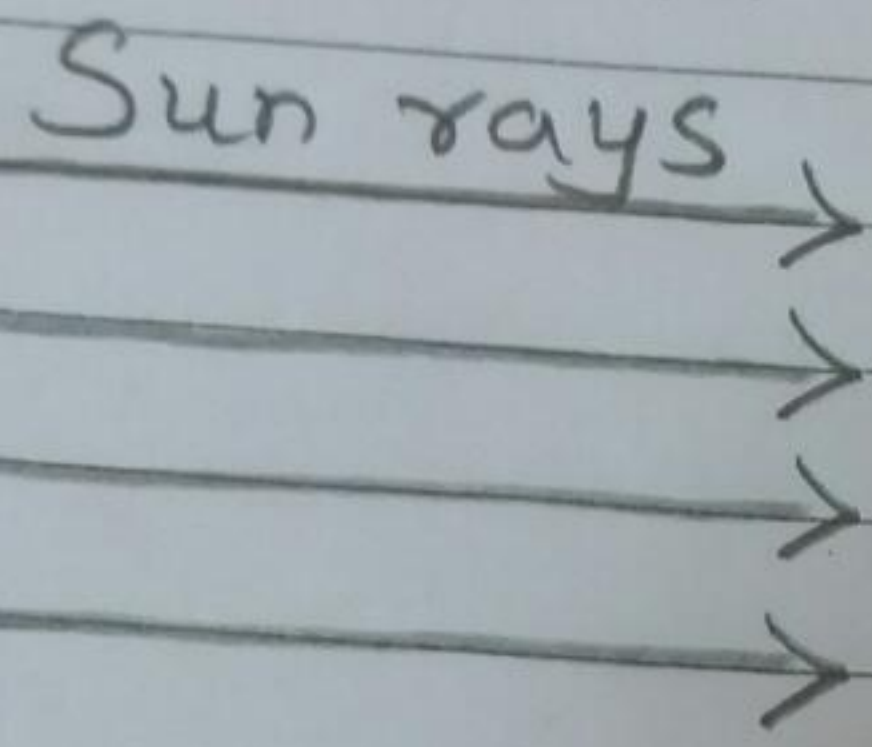 Sun rays